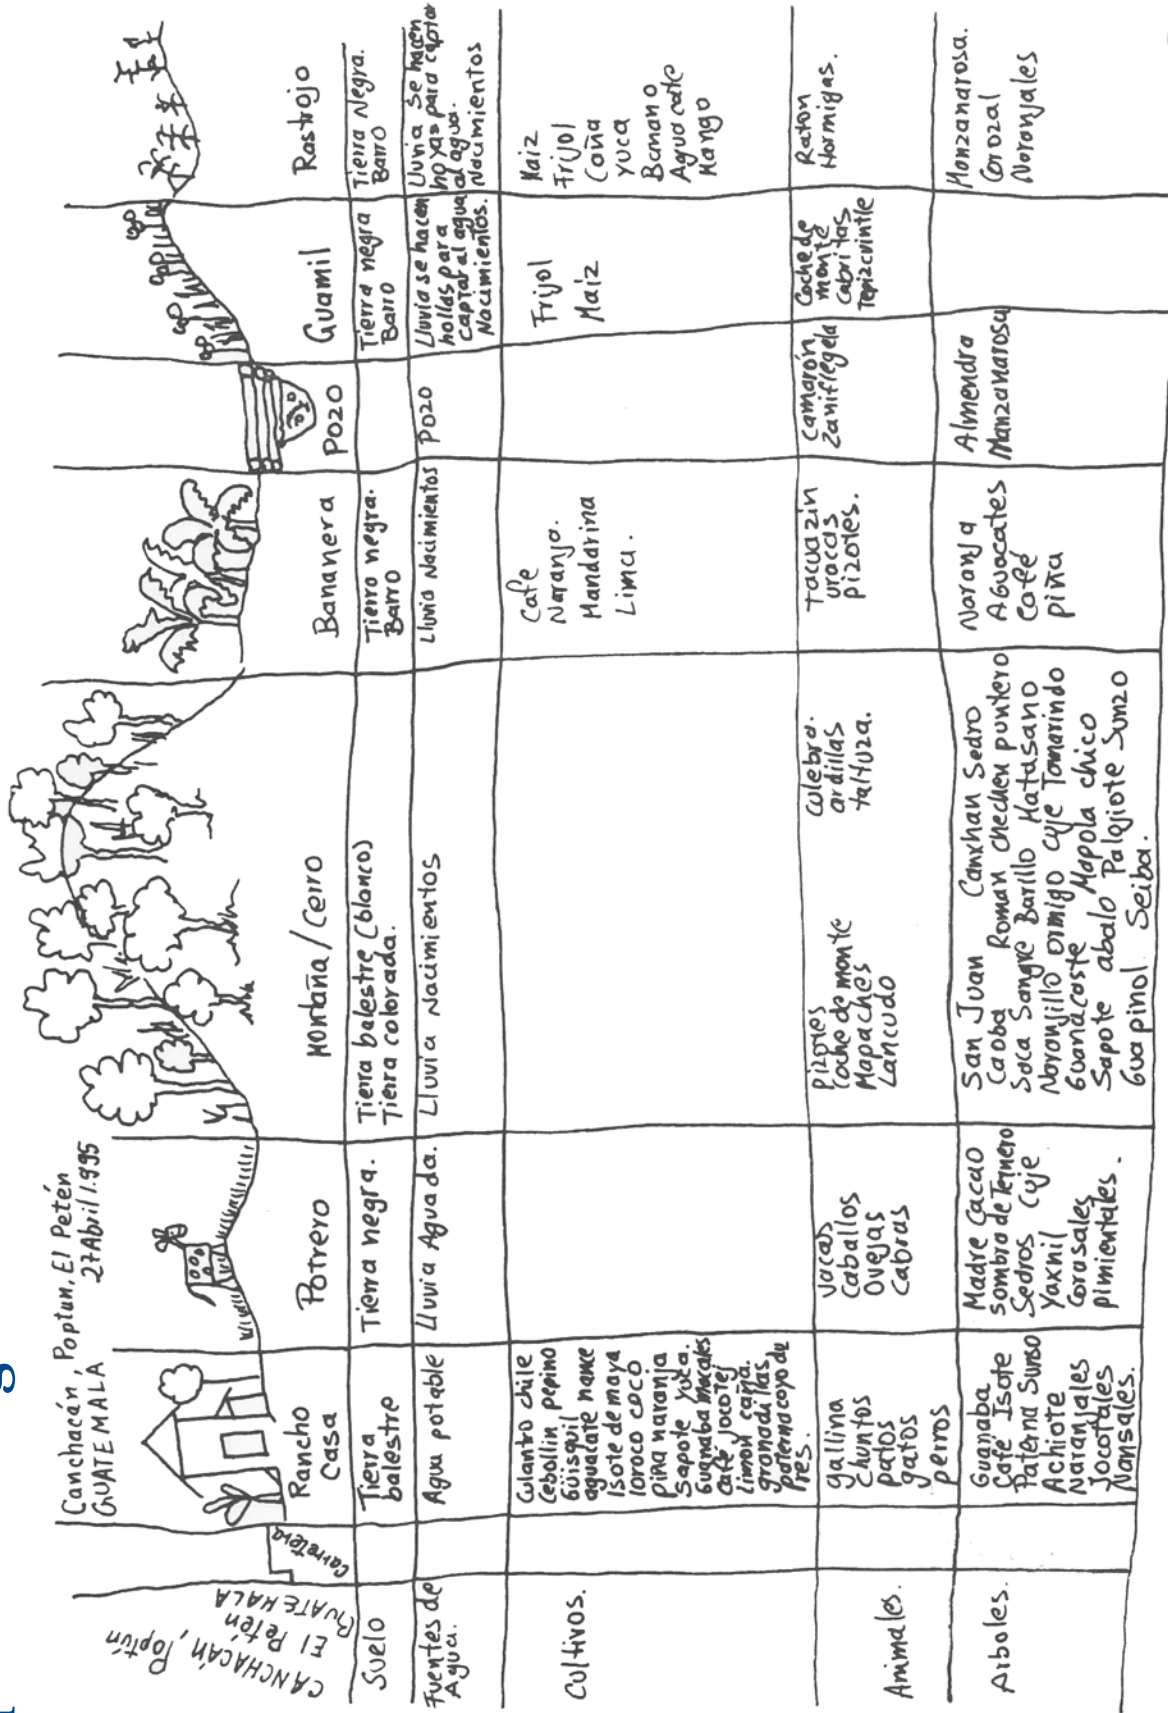 Canchacán, Poptun, El Petén
GUATEMALA 27 Abril 1.995
CANCHACÁN, Poptún
El Petén
GUATEMALA
Carretera
Rancho
Casa
Potrero
Montaña/Cerro
Bananera
Pozo
Guamil
Rastrojo
Suelo
Tierra
balestre
Tierra negra.
Tierra balestre (blanco)
Tierra colorada.
Tierra negra.
Barro
Tierra negra
Barro
Tierra Negra.
Barro
Fuentes de
Agua.
Agua potable
Lluvia Aguada.
Lluvia Nacimientos
Lluvia Nacimientos
Pozo
Lluvia se hacen
hollas para
captar al agua
Nacimientos.
Lluvia se hacen
hoyas para captar
al agua.
Nacimientos
Cultivos.
Culantro chile
Cebollin pepino
Güisquil
aguacate nance
Isote de maya
loroco coco
pina naranja
sapote yuca.
Guanaba macales
café jocotej
limon caña.
granadillas
paterna coyo de
res.
Cafe
Naranjo.
Mandarina
Lima.
Frijol
Maiz
Maiz
Frijol
Caña
yuca
Banano
Aguacate
Mango
Animales.
gallina
chuntos
patos
gatos
y perros
vacas
Caballos
Ovejas
Cabras
pizotes
Coche de monte
Mapaches
Zancudo
culebra.
ardillas
taltuza.
tacuazin
uracas
pizotes.
camarón
Coche de
monte
cabritas
Tepizcuintle
Raton
Hormigas.
Arboles.
Guanaba
Café Isote
Paterna Sunso
Achiote
Naranjales
Jocotales
Nansales.
Madre Cacao
sombra de Ternero
Sedros Cuje
Yaxnil
Corusales
pimientales.
San Juan Canxhan Sedro
Caoba Roman chechen puntero
Saca Sangre Barillo Matasano
Naronjillo ormigo cuje Tamarindo
Guanacoste Mapola chico
Sapote abalo Palojiote Sunzo
Guapinol Seiba.
Naranja
Aguacates
Café
piña
Almendra
Manzanarosa
Manzanarosa.
Corozal
Naronjales